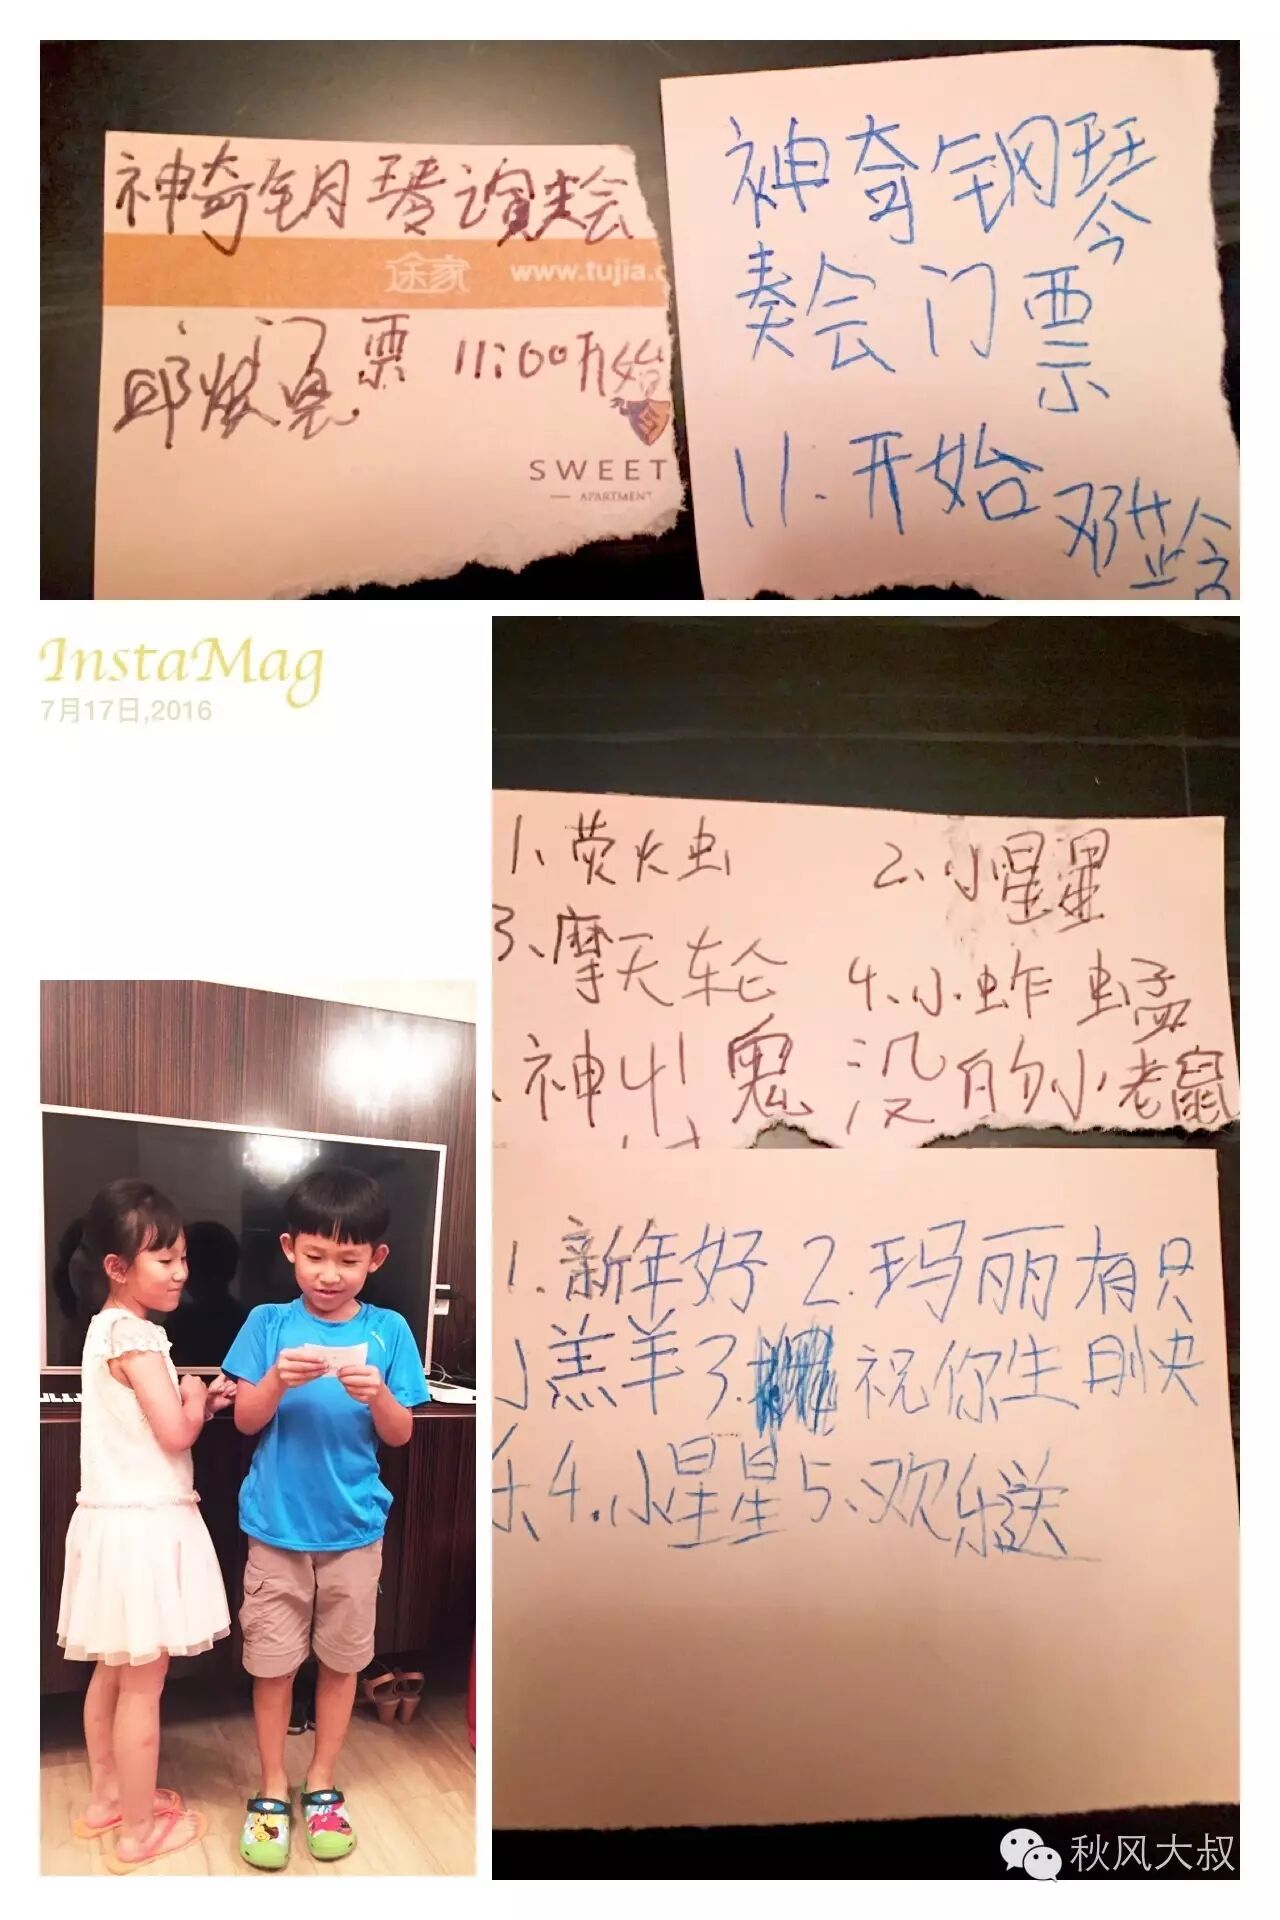 神奇钥琴演奏会
途家 www.tujia.c
门票 11:00开始
SWEET
APARTMENT
神奇钢琴
奏会门票
11:开始
InstaMag
7月17日,2016
1、荧火虫 2、小星星
3、摩天轮 4、小蚱蜢
神出鬼没的小老鼠
1.新年好 2.玛丽有只
小羔羊 3. 祝你生日快
乐 4.小星星 5、欢乐送
秋风大叔